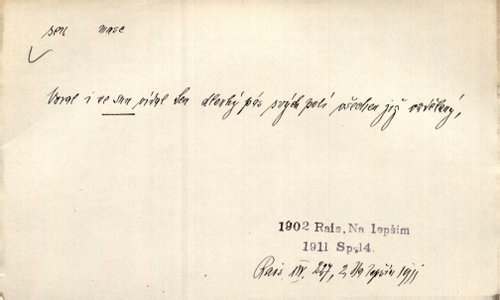 sen masc
i ve snu vídal ten dlouhý pás svých polí všechen již vzdělaný,
1902 Rais, Na lepším
1911 Sp.14.
Rais XIV. 227, Na lepším 1911